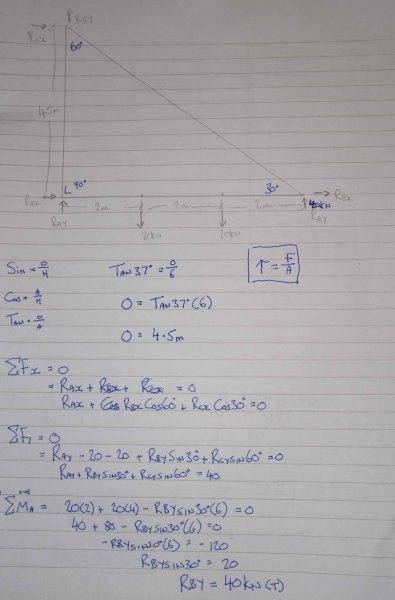 RCY
RCX
60°
4.5m
90°
30°
RAX
2m
2m
2m
RBX
40kN
RBY
RAY
20kN
20kN
Sin = O/H
Tan37° = O/6
τ = F/A
Cos = A/H
O = Tan37°(6)
Tan = O/A
O = 4.5m
ΣFx = 0
= RAX + RBX + RCX = 0
RAX + RBX Cos60° + RCX Cos30° = 0
ΣFy = 0
= RAY - 20 - 20 + RBY Sin30° + RCY Sin60° = 0
RAY + RBY Sin30° + RCY Sin60° = 40
ΣMA = 20(2) + 20(4) - RBY Sin30°(6) = 0
40 + 80 - RBY Sin30°(6) = 0
-RBY Sin30°(6) = -120
RBY Sin30° = 20
RBY = 40kN (T)